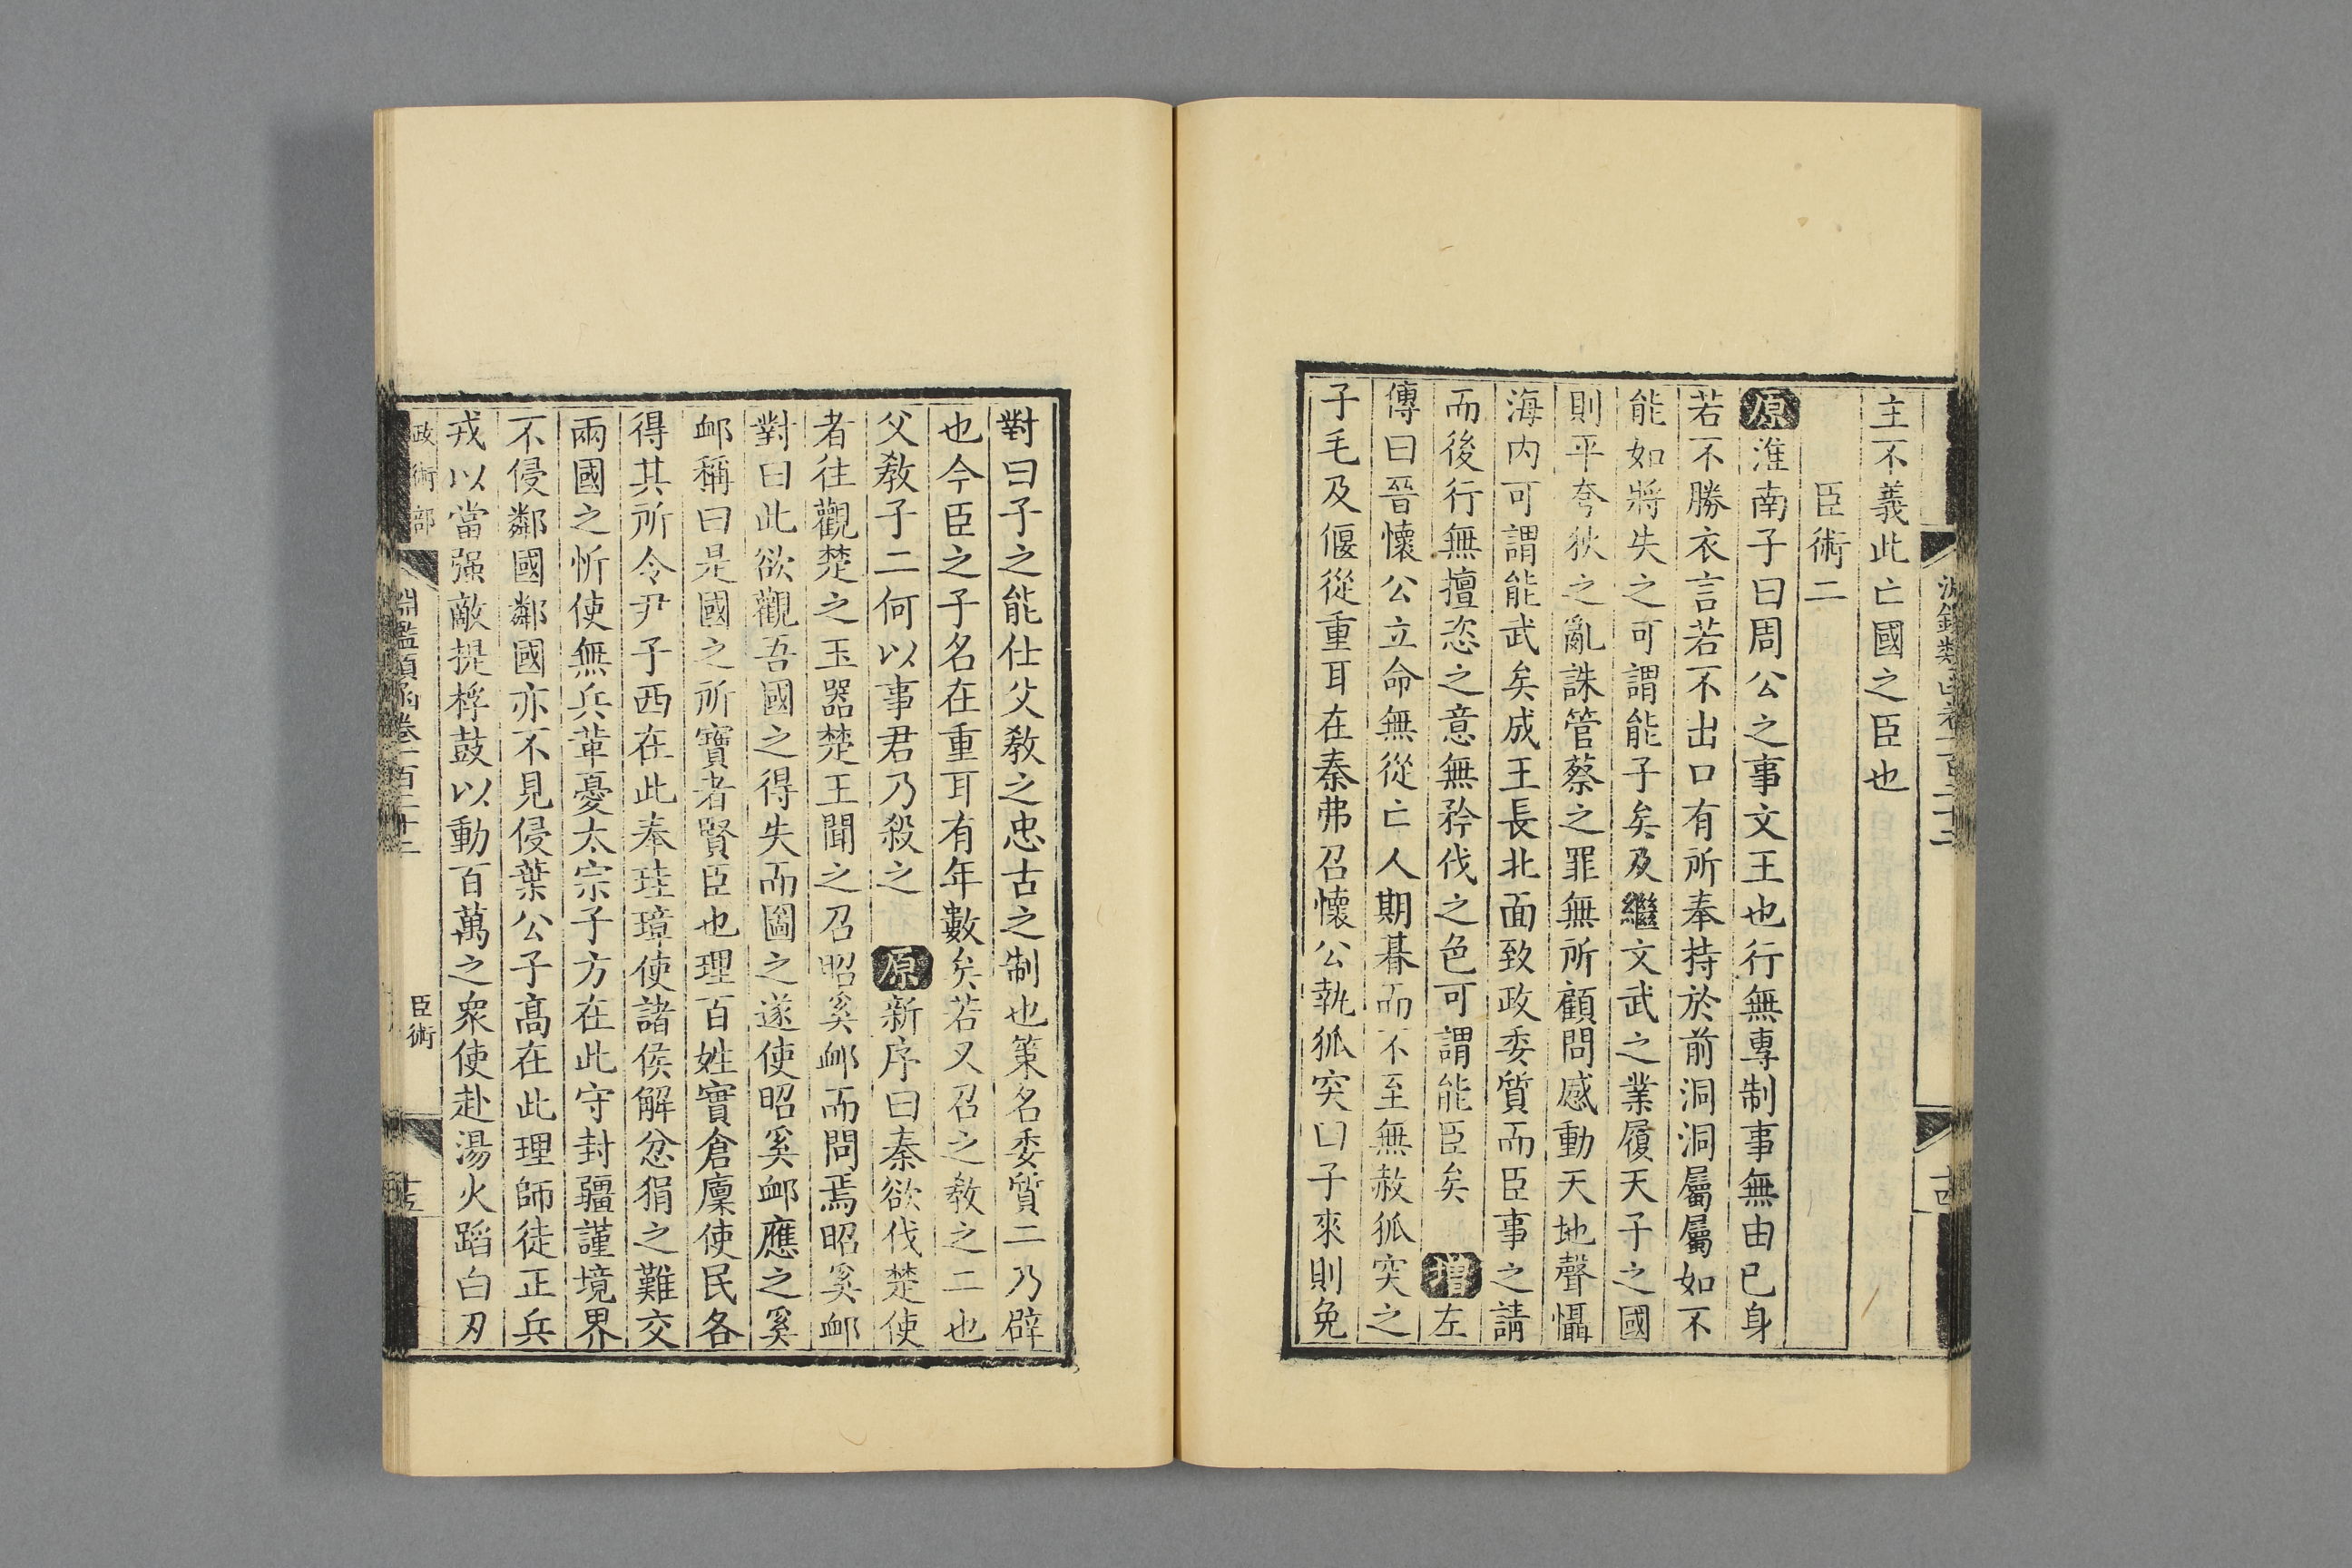 主不義此亡國之臣也
臣術二
原淮南子曰周公之事文王也行無專制事無由已身
若不勝衣言若不出口有所奉持於前洞洞屬屬如不
能如將失之可謂能子矣及繼文武之業履天子之國
則平夸狄之亂誅管蔡之罪無所顧問感動天地聲懾
海内可謂能武矣成王長北面致政委質而臣事之請
而後行無擅恣之意無矜伐之色可謂能臣矣 增左
傳曰晉懷公立命無從亡人期朞而不至無赦狐突之
子毛及偃從重耳在秦弗召懷公執狐突曰子來則免
對曰子之能仕父教之忠古之制也策名委質二乃辟
也今臣之子名在重耳有年數矣若又召之教之二也
父教子二何以事君乃殺之 原新序曰秦欲伐楚使
者往觀楚之玉器楚王聞之召昭奚卹而問焉昭奚卹
對曰此欲觀吾國之得失而圖之遂使昭奚卹應之奚
卹稱曰是國之所寶者賢臣也理百姓實倉廩使民各
得其所令尹子西在此奉珪璋使諸侯解忿狷之難交
兩國之忻使無兵革憂太宗子方在此守封疆謹境界
不侵鄰國鄰國亦不見侵葉公子高在此理師徒正兵
戎以當强敵提桴鼓以動百萬之衆使赴湯火蹈白刃
政術部
淵鑑類函卷一百二十二
臣術